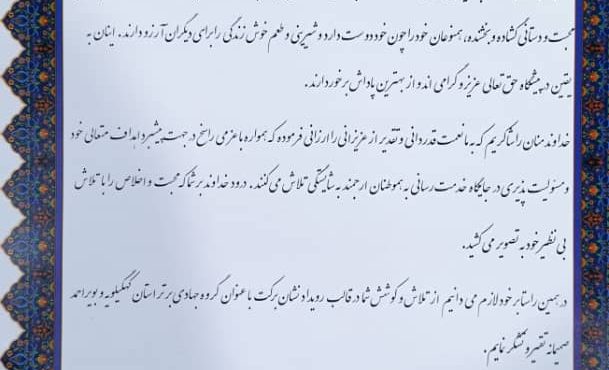 محبت و دستانی گشاده و بخشنده، همنوعان خود را چون خود دوست دارد و شیرینی و طعم خوش زندگی را برای دیگران آرزو دارند. اینان به
یقین در پیشگاه حق تعالی عزیز و گرامی اند و از بهترین پاداش برخوردارند.
خداوند منان را شاکریم که به ما نعمت قدردانی و تقدیر از عزیزانی را ارزانی فرموده که همواره با عزمی راسخ در جهت پیشبرد اهداف متعالی خود
و مسئولیت پذیری در جایگاه خدمت رسانی به هموطنان ارجمند به شایستگی تلاش می کنند. درود خداوند بر شما که محبت و اخلاص را با تلاش
بی نظیر خود به تصویر می کشید.
در همین راستا بر خود لازم می دانیم از تلاش و کوشش شما در قالب رویداد نشان برکت با عنوان گروه جهادی برتر استان کهگیلویه و بویراحمد
صمیمانه تقدیر و تشکر نمایم.